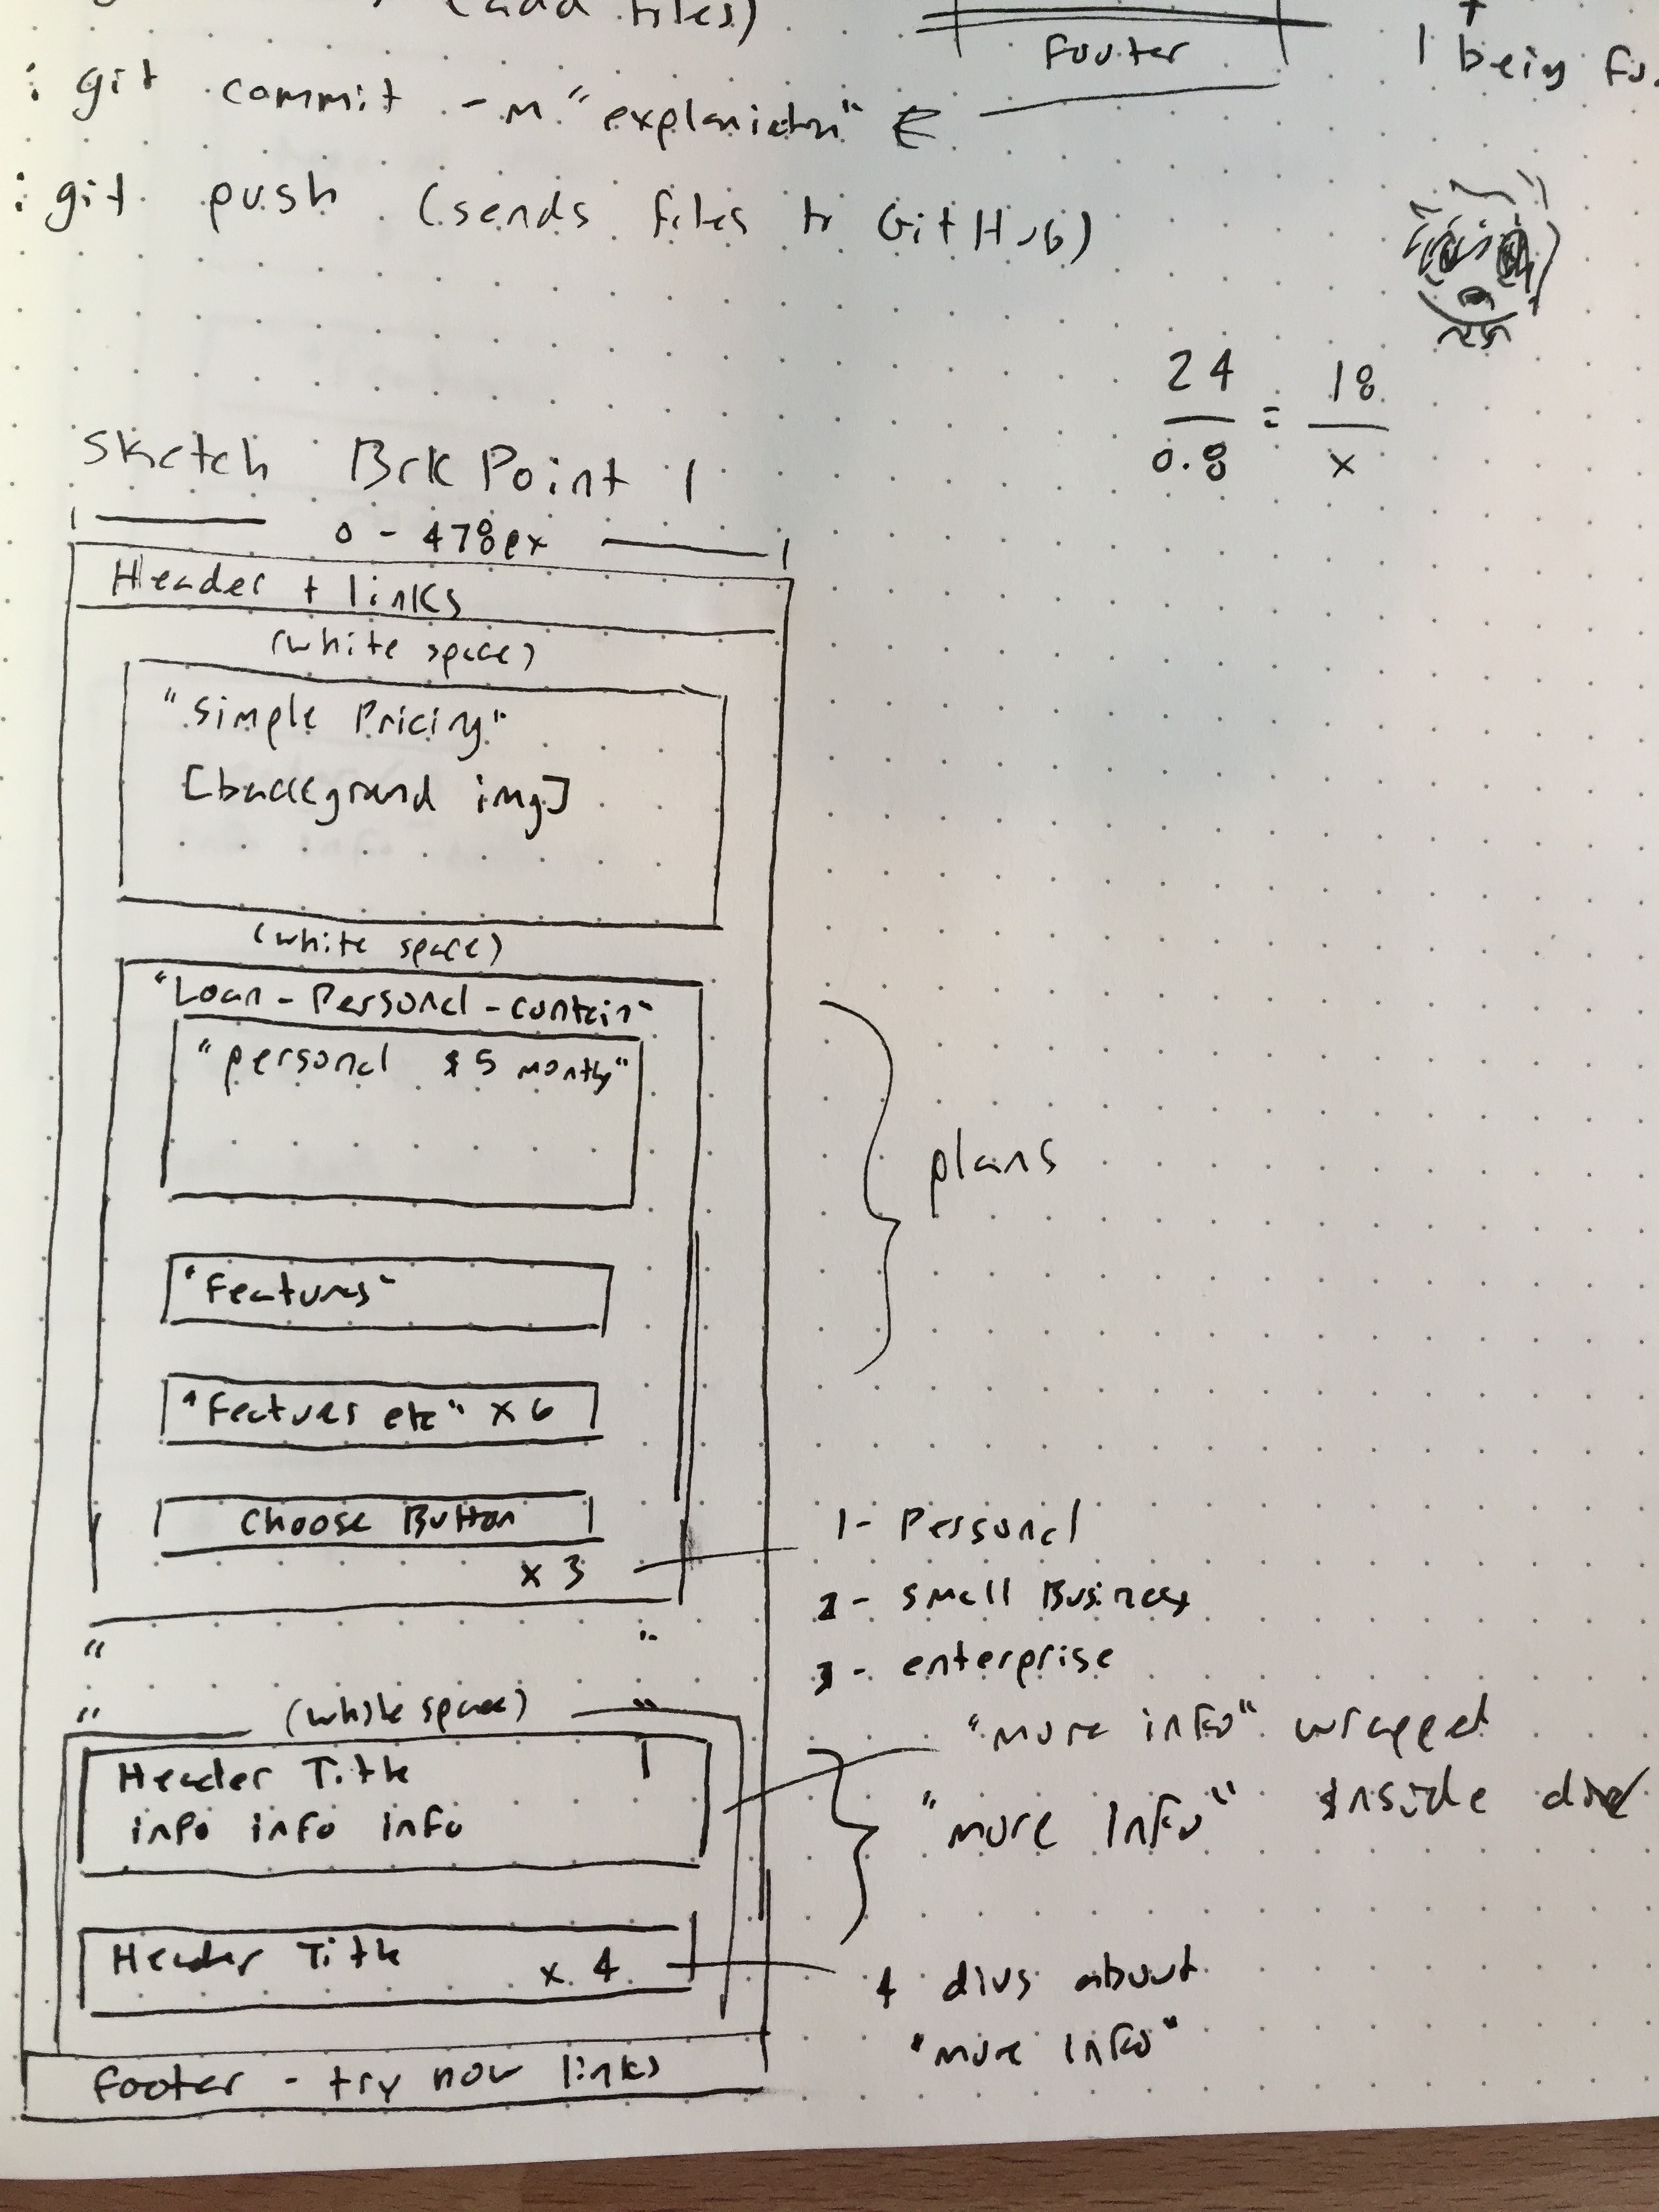 (add files)
Footer
: git commit -m "explaniation" ←
1 being
: git push (sends files to GitHub)
24 / 0.8 = 18 / x
Sketch Brk Point 1
0 - 478px
Header + links
(white space)
"Simple Pricing"
[background img]
(white space)
"Loan-Personal-contain"
"personal $5 monthly"
plans
"Features"
"Features etc" x 6
Choose Button
x 3
1- Personal
2- Small Business
3- enterprise
" "
" (white space) "
"more info" wrapped
inside div
Header Title
info info info
"more Info"
Header Title x 4
4 divs about
"more Info"
Footer - try now links